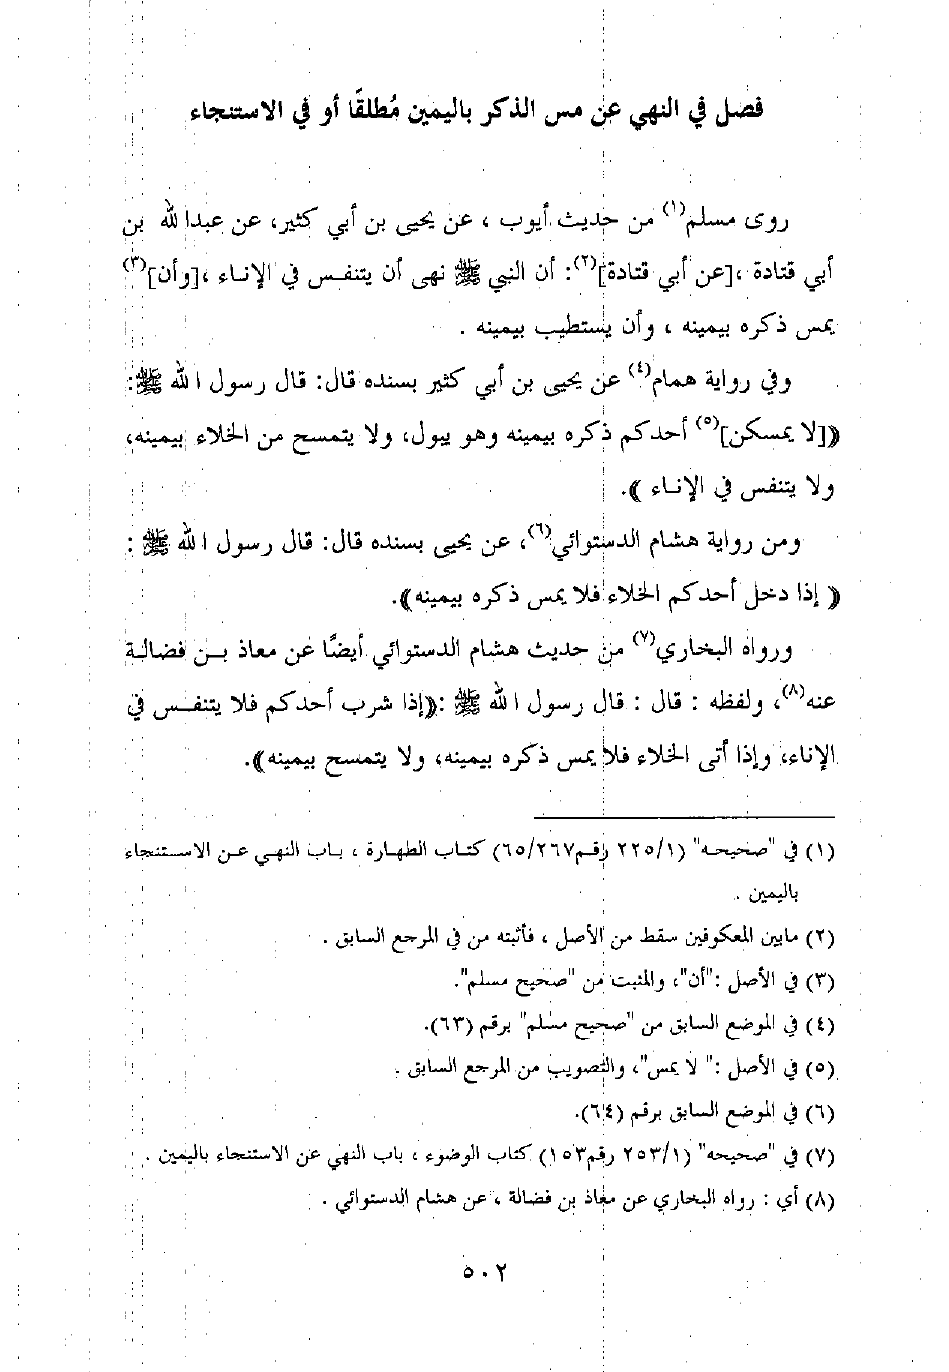 فصل في النهي عن مس الذكر باليمين مُطلقًا أو في الاستنجاء
روى مسلم(١) من حديث أيوب ، عن يحيى بن أبي كثير، عن عبدالله بن
أبي قتادة ،[عن أبي قتادة](٢): أن النبي ﷺ نهى أن يتنفس في الإناء ،[وأن](٣)
يمس ذكره بيمينه ، وأن يستطيب بيمينه .
وفي رواية همام(٤) عن يحيى بن أبي كثير بسنده قال: قال رسول الله ﷺ:
﴿[لا يمسكن](٥) أحدكم ذكره بيمينه وهو يبول، ولا يتمسح من الخلاء بيمينه،
ولا يتنفس في الإناء ﴾.
ومن رواية هشام الدستوائي(٦)، عن يحيى بسنده قال: قال رسول الله ﷺ :
﴿ إذا دخل أحدكم الخلاء فلا يمس ذكره بيمينه﴾.
ورواه البخاري(٧) من حديث هشام الدستوائي أيضًا عن معاذ بن فضالة
عنه(٨)، ولفظه : قال : قال رسول الله ﷺ :﴿إذا شرب أحدكم فلا يتنفس في
الإناء، وإذا أتى الخلاء فلا يمس ذكره بيمينه، ولا يتمسح بيمينه﴾.
(١) في "صحيحه" (٢٢٥/١ رقم٦٥/٢٦٧) كتاب الطهارة ، باب النهي عن الاستنجاء
باليمين .
(٢) مابين المعكوفين سقط من الأصل ، فأثبته من في المرجع السابق .
(٣) في الأصل :"أن"، والمثبت من "صحيح مسلم".
(٤) في الموضع السابق من "صحيح مسلم" برقم (٦٣).
(٥) في الأصل :" لا يمس"، والتصويب من المرجع السابق .
(٦) في الموضع السابق برقم (٦٤).
(٧) في "صحيحه" (٢٥٣/١ رقم١٥٣) كتاب الوضوء ، باب النهي عن الاستنجاء باليمين .
(٨) أي : رواه البخاري عن معاذ بن فضالة ، عن هشام الدستوائي .
٥٠٢